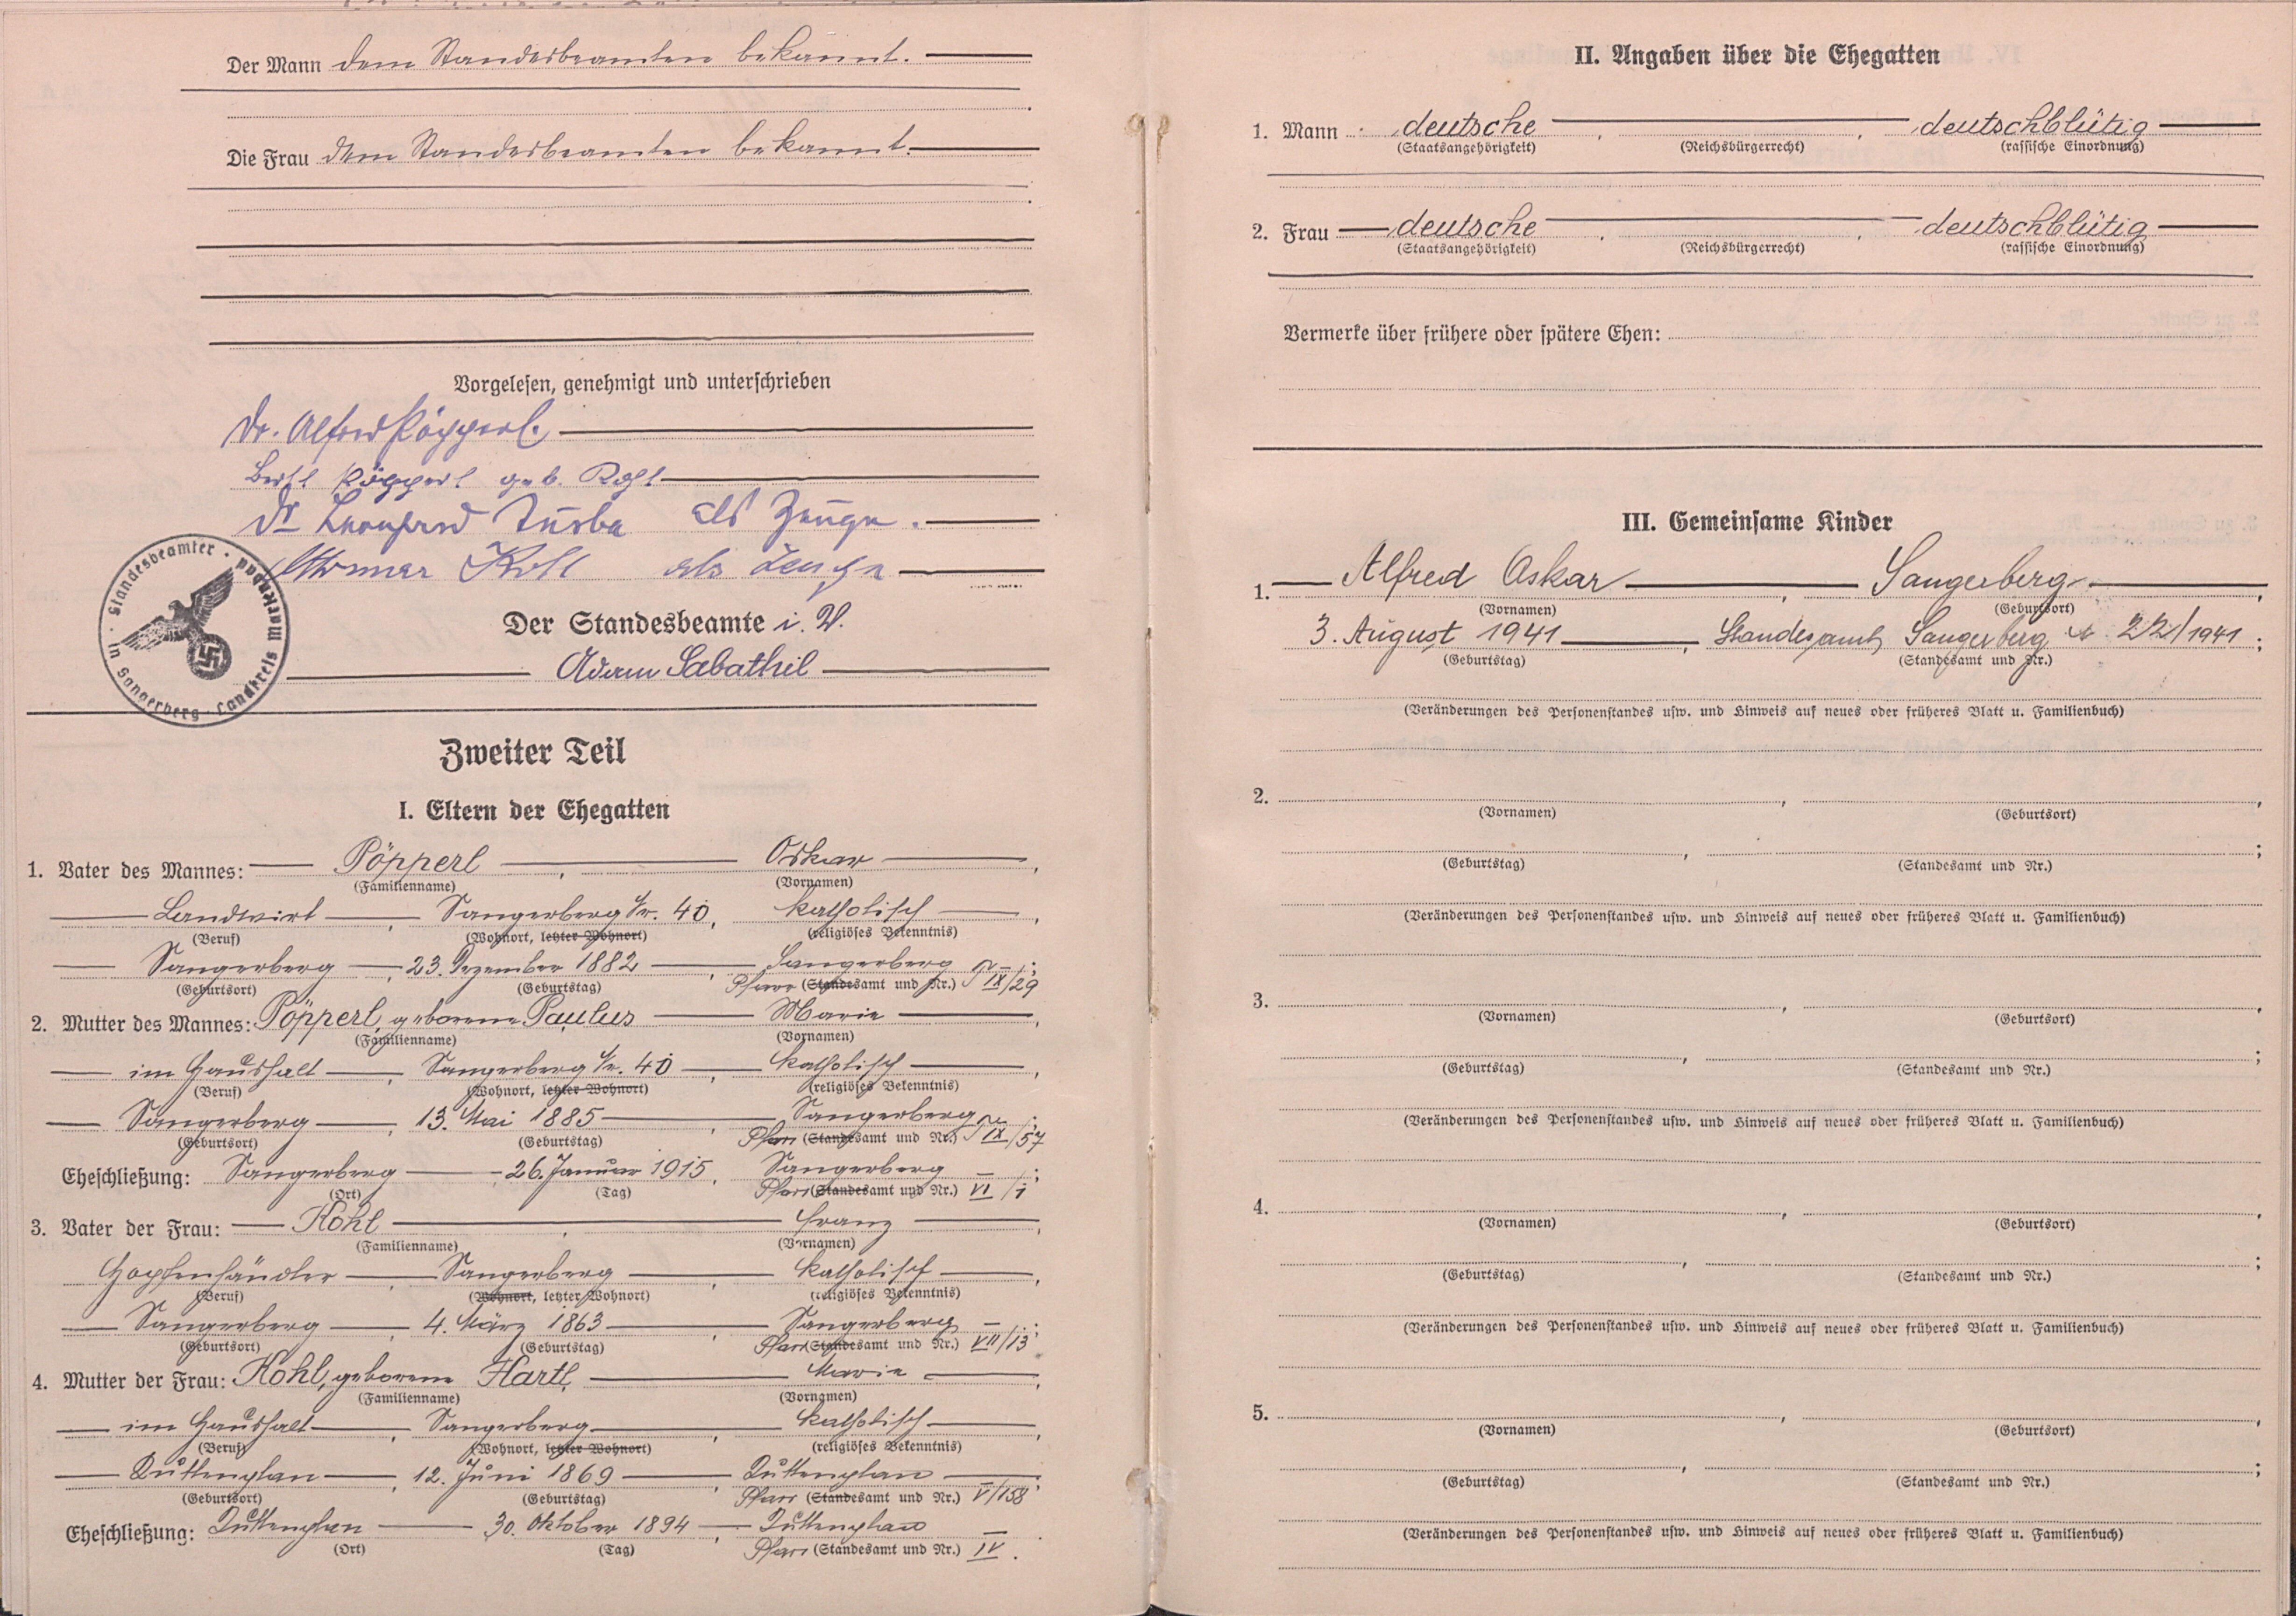 Der Mann dem Standesbeamten bekannt.
Die Frau dem Standesbeamten bekannt.
Vorgelesen, genehmigt und unterschrieben
Dr. Alfred Pöpperl.
Bertl Pöpperl geb. Kohl
Dr Leonhard als Zeuge.
Kohl als Zeuge
Der Standesbeamte i. V.
Adam Sabathil
Standesbeamter · in Sangerberg · Landkreis Marienbad
Zweiter Teil
I. Eltern der Ehegatten
1. Vater des Mannes: Pöpperl, Oskar,
(Familienname) (Vornamen)
Landwirt, Sangerberg Nr. 40, katholisch,
(Beruf) (Wohnort, letzter Wohnort) (religiöses Bekenntnis)
Sangerberg, 23. Dezember 1882, Sangerberg IX/29;
(Geburtsort) (Geburtstag) Pfarr (Standesamt und Nr.)
2. Mutter des Mannes: Pöpperl, geborene Paulus Marie,
(Familienname) (Vornamen)
im Haushalt, Sangerberg Nr. 40, katholisch,
(Beruf) (Wohnort, letzter Wohnort) (religiöses Bekenntnis)
Sangerberg, 13. Mai 1885, Sangerberg IX/57;
(Geburtsort) (Geburtstag) Pfarr (Standesamt und Nr.)
Eheschließung: Sangerberg, 26. Januar 1915, Sangerberg VI/1;
(Ort) (Tag) Pfarr (Standesamt und Nr.)
3. Vater der Frau: Kohl, Franz,
(Familienname) (Vornamen)
Hopfenhändler, Sangerberg, katholisch,
(Beruf) (Wohnort, letzter Wohnort) (religiöses Bekenntnis)
Sangerberg, 4. März 1863, Sangerberg VII/13;
(Geburtsort) (Geburtstag) Pfarr (Standesamt und Nr.)
4. Mutter der Frau: Kohl, geborene Hartl, Marie,
(Familienname) (Vornamen)
im Haushalt, Sangerberg, katholisch,
(Beruf) (Wohnort, letzter Wohnort) (religiöses Bekenntnis)
Kuttenplan, 12. Juni 1869, Kuttenplan V/158;
(Geburtsort) (Geburtstag) Pfarr (Standesamt und Nr.)
Eheschließung: Kuttenplan 30. Oktober 1894, Kuttenplan IV.
(Ort) (Tag) Pfarr (Standesamt und Nr.)
II. Angaben über die Ehegatten
1. Mann deutsche, , deutschblütig
(Staatsangehörigkeit) (Reichsbürgerrecht) (rassische Einordnung)
2. Frau deutsche, , deutschblütig
(Staatsangehörigkeit) (Reichsbürgerrecht) (rassische Einordnung)
Vermerke über frühere oder spätere Ehen:
III. Gemeinsame Kinder
1. Alfred Oskar, Sangerberg,
(Vornamen) (Geburtsort)
3. August 1941, Standesamt Sangerberg Nr. 22/1941;
(Geburtstag) (Standesamt und Nr.)
(Veränderungen des Personenstandes usw. und Hinweis auf neues oder früheres Blatt u. Familienbuch)
2. , ,
(Vornamen) (Geburtsort)
, ;
(Geburtstag) (Standesamt und Nr.)
(Veränderungen des Personenstandes usw. und Hinweis auf neues oder früheres Blatt u. Familienbuch)
3. , ,
(Vornamen) (Geburtsort)
, ;
(Geburtstag) (Standesamt und Nr.)
(Veränderungen des Personenstandes usw. und Hinweis auf neues oder früheres Blatt u. Familienbuch)
4. , ,
(Vornamen) (Geburtsort)
, ;
(Geburtstag) (Standesamt und Nr.)
(Veränderungen des Personenstandes usw. und Hinweis auf neues oder früheres Blatt u. Familienbuch)
5. , ,
(Vornamen) (Geburtsort)
, ;
(Geburtstag) (Standesamt und Nr.)
(Veränderungen des Personenstandes usw. und Hinweis auf neues oder früheres Blatt u. Familienbuch)